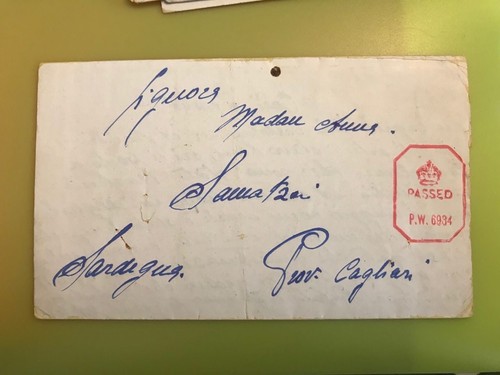 Signora
Madau Anna.
Samatzai
Sardegna.
Prov. Cagliari
PASSED
P.W. 6934